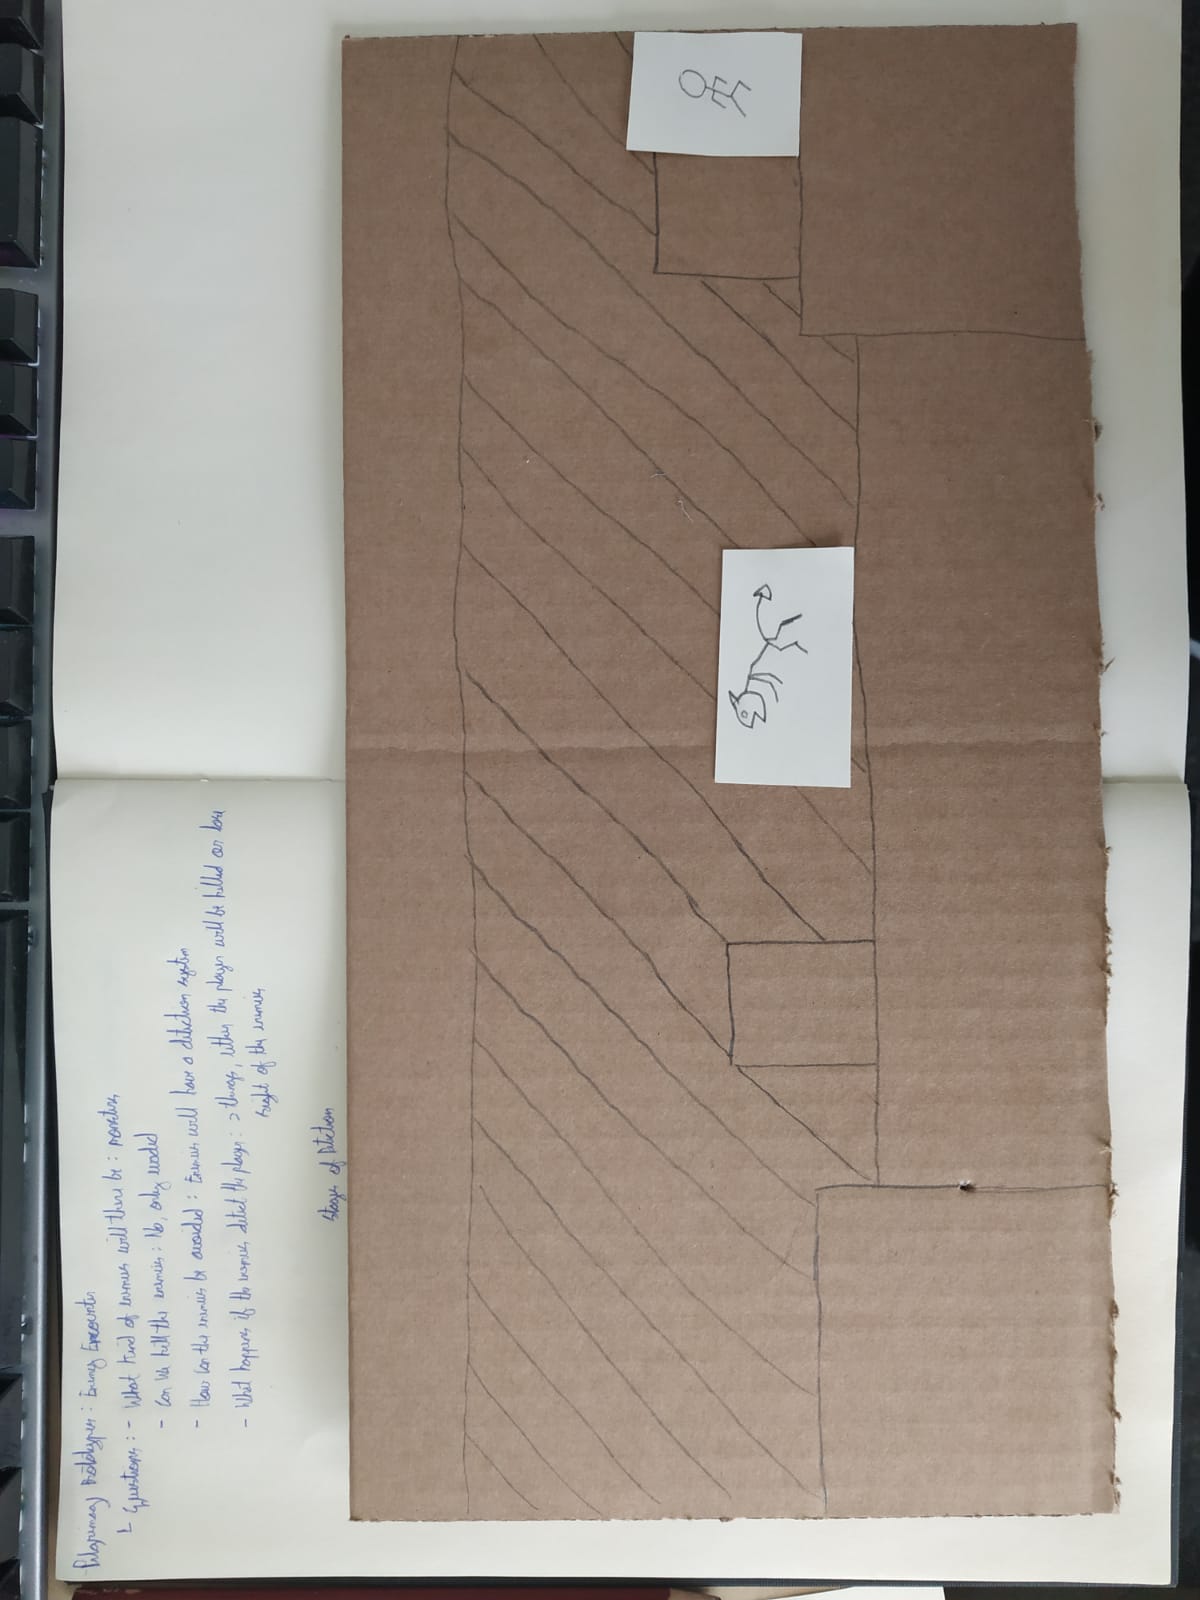 Pilgrimag Prototypes : Enemy Encounter
Questions : - What kind of enemies will there be : monsters
- Can we kill the enemies : No, only evaded
- How can the enemies be avoided : Enemies will have a detection system
- What happens if the enemies detect the player : 2 things, either the player will be killed or lose
sight of the enemies
Stages of Detection